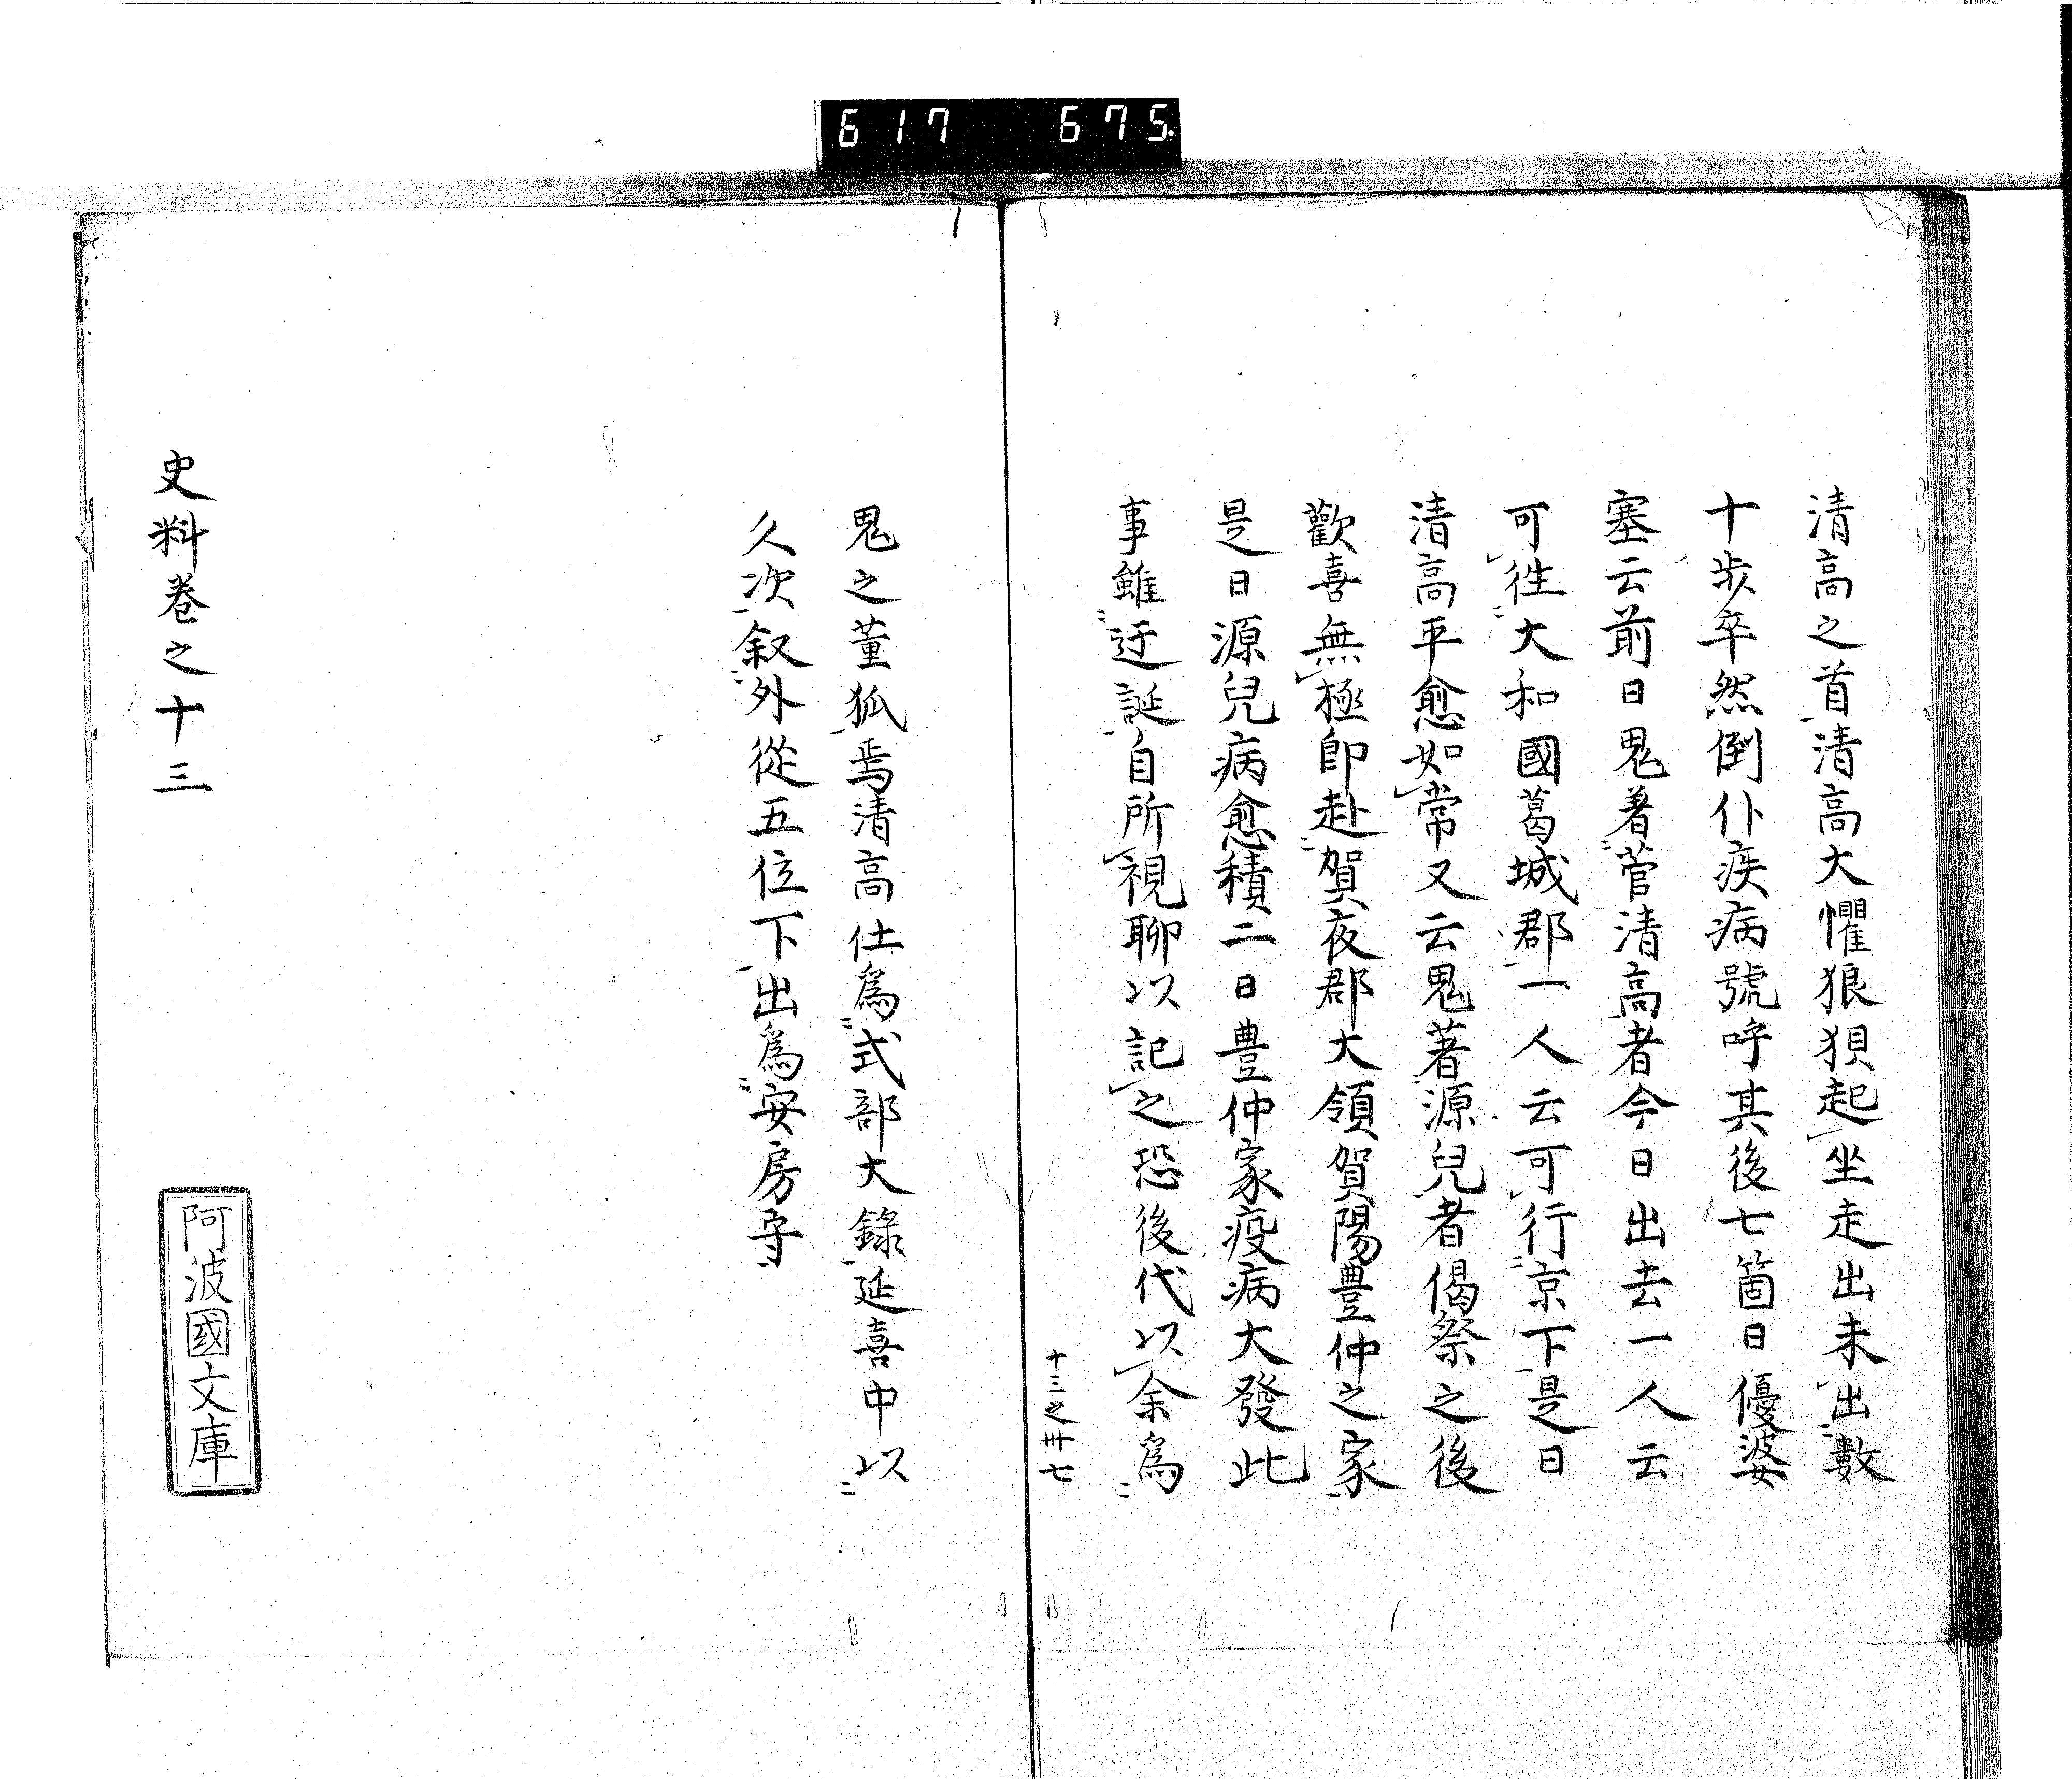 617 675
清高之首清高大懼狼狽起坐走出未出數
十歩卒然倒仆疾病號呼其後七箇日優婆
塞云前日鬼著菅清高者今日出去一人云
可徃大和國葛城郡一人云可行京下是日
清高平愈如常又云鬼著源兒者偈祭之後
歡喜無極即赴賀夜郡大領賀陽豊仲之家
是日源兒病愈積二日豊仲家疫病大發此
事雖迂誕自所視聊以記之恐後代以余爲
十三之卅七
鬼之董狐焉清高仕爲式部大錄延喜中以
久次叙外從五位下出爲安房守
史料卷之十三
阿波國文庫